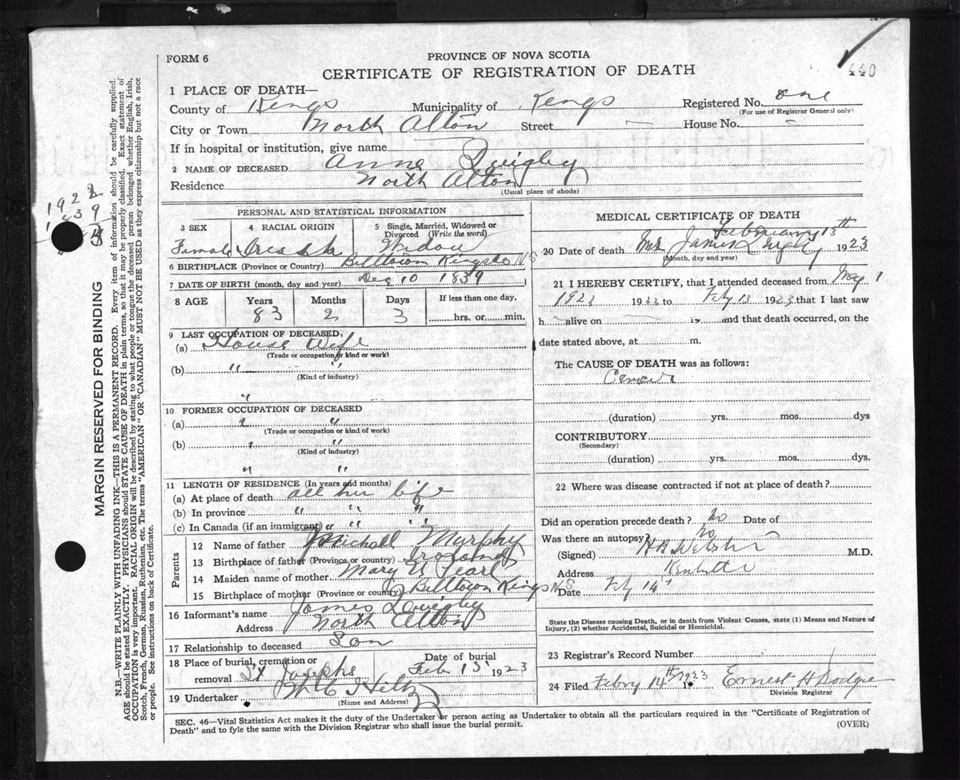 440
FORM 6
PROVINCE OF NOVA SCOTIA
CERTIFICATE OF REGISTRATION OF DEATH
1 PLACE OF DEATH—
County of Kings Municipality of Kings Registered No. one
(For use of Registrar General only)
City or Town North Alton Street — House No. —
If in hospital or institution, give name
2 NAME OF DECEASED Anne Quigley
Residence North Alton
(Usual place of abode)
PERSONAL AND STATISTICAL INFORMATION
3 SEX 4 RACIAL ORIGIN 5 Single, Married, Widowed or Divorced (Write the word)
Female Widow
6 BIRTHPLACE (Province or Country) Billtown Kings Co NS
7 DATE OF BIRTH (month, day and year) Dec 10 1839
8 AGE Years Months Days If less than one day,
83 2 3 hrs. or min.
9 LAST OCCUPATION OF DECEASED,
(a) House Wife
(Trade or occupation or kind of work)
(b) " "
(Kind of industry)
"
10 FORMER OCCUPATION OF DECEASED
(a) " "
(Trade or occupation or kind of work)
(b) " "
(Kind of industry)
" "
11 LENGTH OF RESIDENCE (In years and months)
(a) At place of death all her life
(b) In province " " "
(c) In Canada (if an immigrant) " " "
Parents
12 Name of father Michall Murphy
13 Birthplace of father (Province or country)
14 Maiden name of mother Mary
15 Birthplace of mother (Province or country) Billtown Kings NS
16 Informant's name James Quigley
Address North Alton
17 Relationship to deceased Son
18 Place of burial, cremation or removal St Josephs Date of burial Feb 15 1923
19 Undertaker W C Hiltz
(Name and Address)
MEDICAL CERTIFICATE OF DEATH
20 Date of death February 13th 1923
Mrs James Quigley
(Month, day and year)
21 I HEREBY CERTIFY, that I attended deceased from May 1
1922 to Feby 13 1923 that I last saw
h alive on is and that death occurred, on the
date stated above, at m.
The CAUSE OF DEATH was as follows:
Cancer
(duration) yrs. mos. dys
CONTRIBUTORY
(Secondary)
(duration) yrs. mos. dys
22 Where was disease contracted if not at place of death?
Did an operation precede death? No Date of
Was there an autopsy? No
(Signed) M.D.
Address Kentville
Date Feby 14
State the Disease causing Death, or in death from Violent Causes, state (1) Means and Nature of
Injury, (2) whether Accidental, Suicidal or Homicidal.
23 Registrar's Record Number
24 Filed Febry 14th 1923 Ernest H Dodge
Division Registrar
SEC. 46—Vital Statistics Act makes it the duty of the Undertaker or person acting as Undertaker to obtain all the particulars required in the "Certificate of Registration of
Death" and to fyle the same with the Division Registrar who shall issue the burial permit. (OVER)
MARGIN RESERVED FOR BINDING
N.B.—WRITE PLAINLY WITH UNFADING INK—THIS IS A PERMANENT RECORD. Every item of information should be carefully supplied.
AGE should be stated EXACTLY. PHYSICIANS should STATE CAUSE OF DEATH in plain terms, so that it may be properly classified. Exact statement of
OCCUPATION is very important. RACIAL ORIGIN will be described by stating to what people or tongue the deceased person belonged whether English, Irish,
Scotch, French, German, Russian, Ruthenian, etc. The terms "AMERICAN" OR "CANADIAN" MUST NOT BE USED as they express citizenship but not a race
or people. See instructions on back of Certificate.